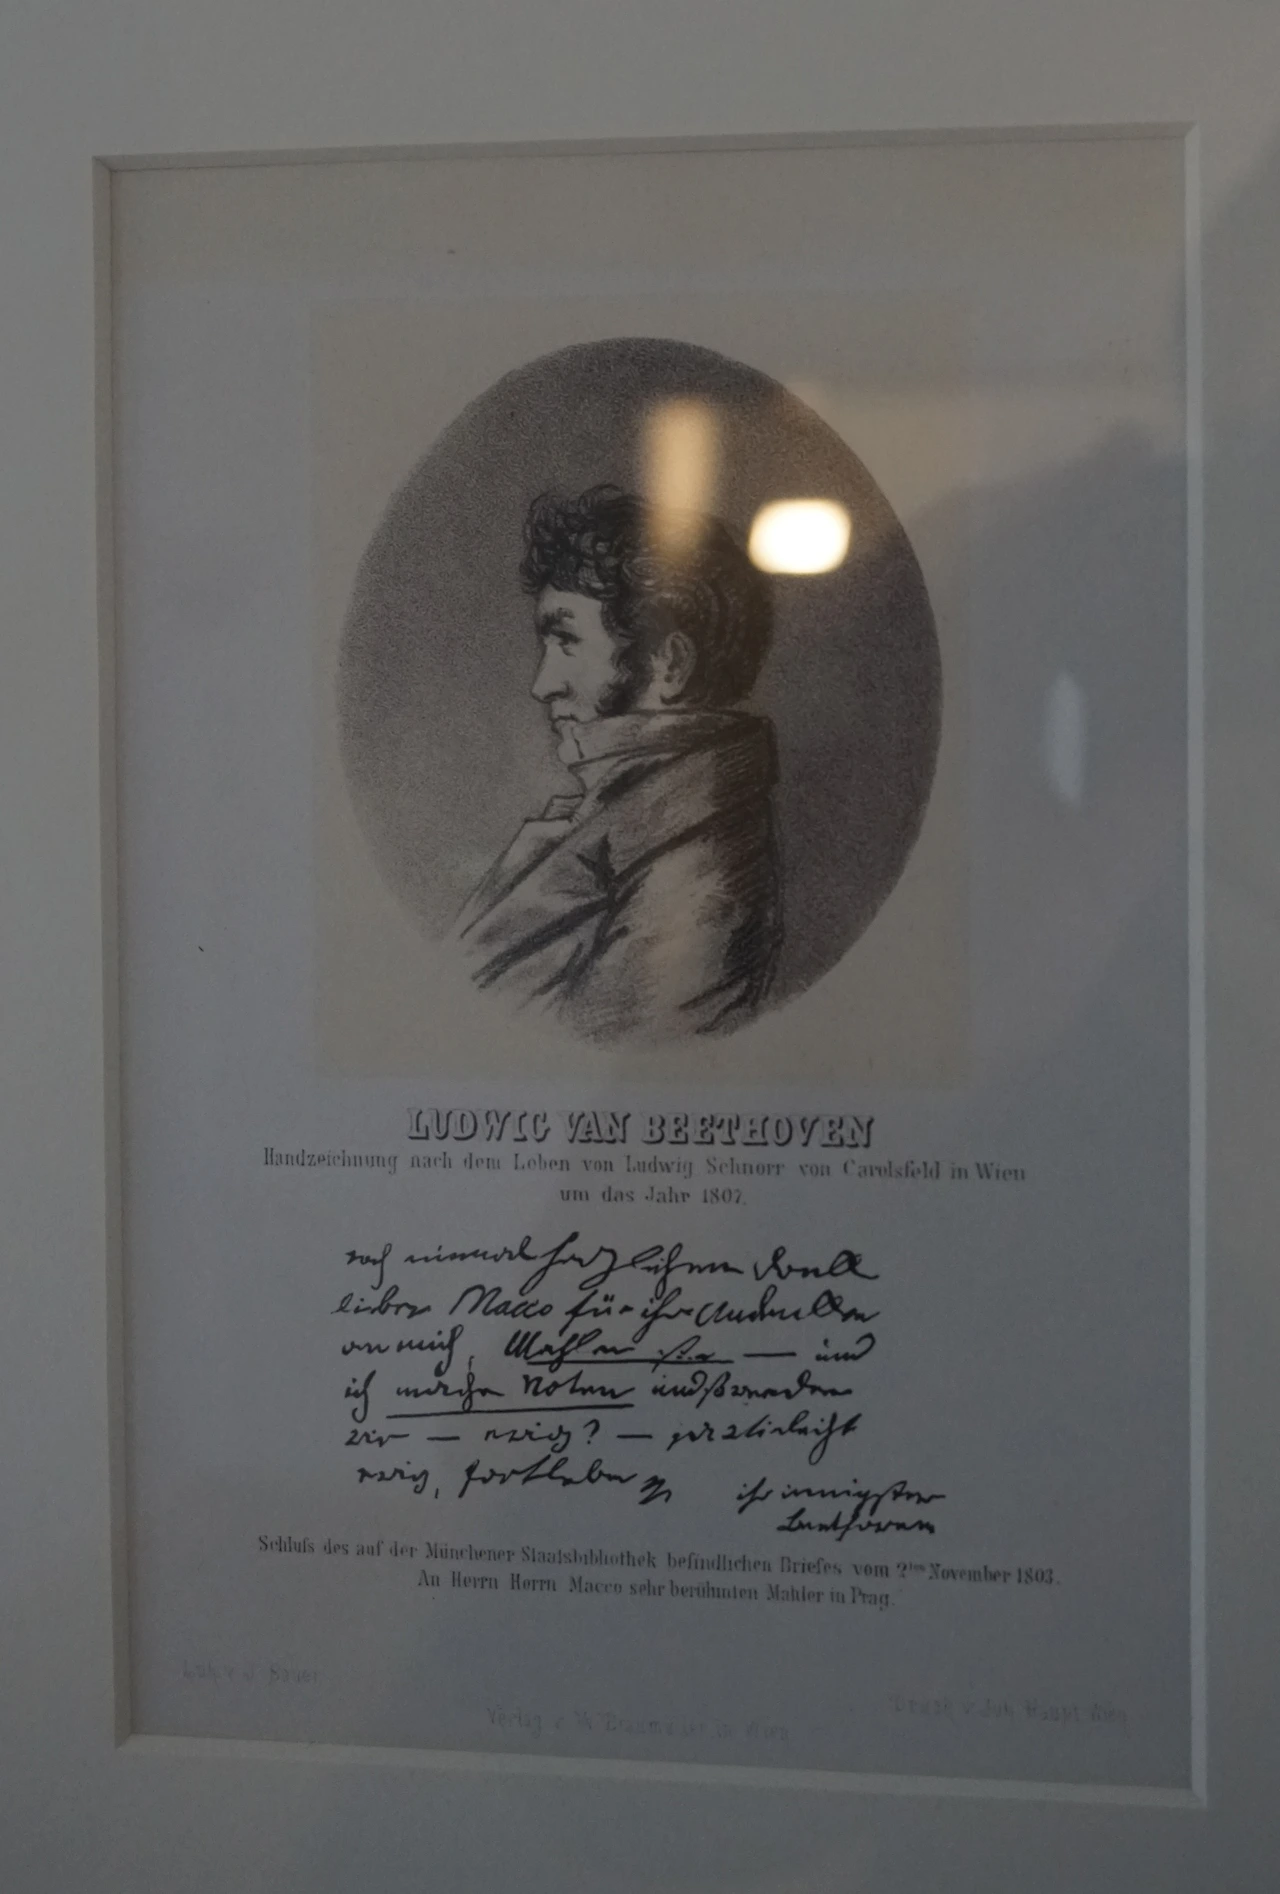 LUDWIG VAN BEETHOVEN
Handzeichnung nach dem Leben von Ludwig Schnorr von Carolsfeld in Wien
um das Jahr 1807.
noch einmal herzlichen Danck
lieber Macco für ihr Andencken
an mich, Mahlen sie — und
ich mache Noten und so werden
wir — ewig? — ja vieleicht
ewig, fortleben
ihr innigster
Beethowen
Schlufs des auf der Münchener Staatsbibliothek befindlichen Briefes vom 2ten November 1803.
An Herrn Herrn Macco sehr berühmten Mahler in Prag.
Lith v J. Bauer
Verlag v. W. Braumüller in Wien
Druck v. Joh Haupt Wien